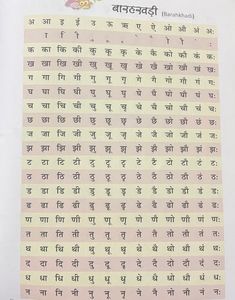 बारहखड़ी (Barahkhadi)
अ आ इ ई उ ऊ ऋ ए ऐ ओ औ अं अः
ा ि ी ु ू ृ े ै ो ौ ं ः
क का कि की कु कू कृ के कै को कौ कं कः
ख खा खि खी खु खू खृ खे खै खो खौ खं खः
ग गा गि गी गु गू गृ गे गै गो गौ गं गः
घ घा घि घी घु घू घृ घे घै घो घौ घं घः
च चा चि ची चु चू चृ चे चै चो चौ चं चः
छ छा छि छी छु छू छृ छे छै छो छौ छं छः
ज जा जि जी जु जू जृ जे जै जो जौ जं जः
झ झा झि झी झु झू झृ झे झै झो झौ झं झः
ट टा टि टी टु टू टृ टे टै टो टौ टं टः
ठ ठा ठि ठी ठु ठू ठृ ठे ठै ठो ठौ ठं ठः
ड डा डि डी डु डू डृ डे डै डो डौ डं डः
ढ ढा ढि ढी ढु ढू ढृ ढे ढै ढो ढौ ढं ढः
ण णा णि णी णु णू णृ णे णै णो णौ णं णः
त ता ति ती तु तू तृ ते तै तो तौ तं तः
थ था थि थी थु थू थृ थे थै थो थौ थं थः
द दा दि दी दु दू दृ दे दै दो दौ दं दः
ध धा धि धी धु धू धृ धे धै धो धौ धं धः
न ना नि नी नु नू नृ ने नै नो नौ नं नः